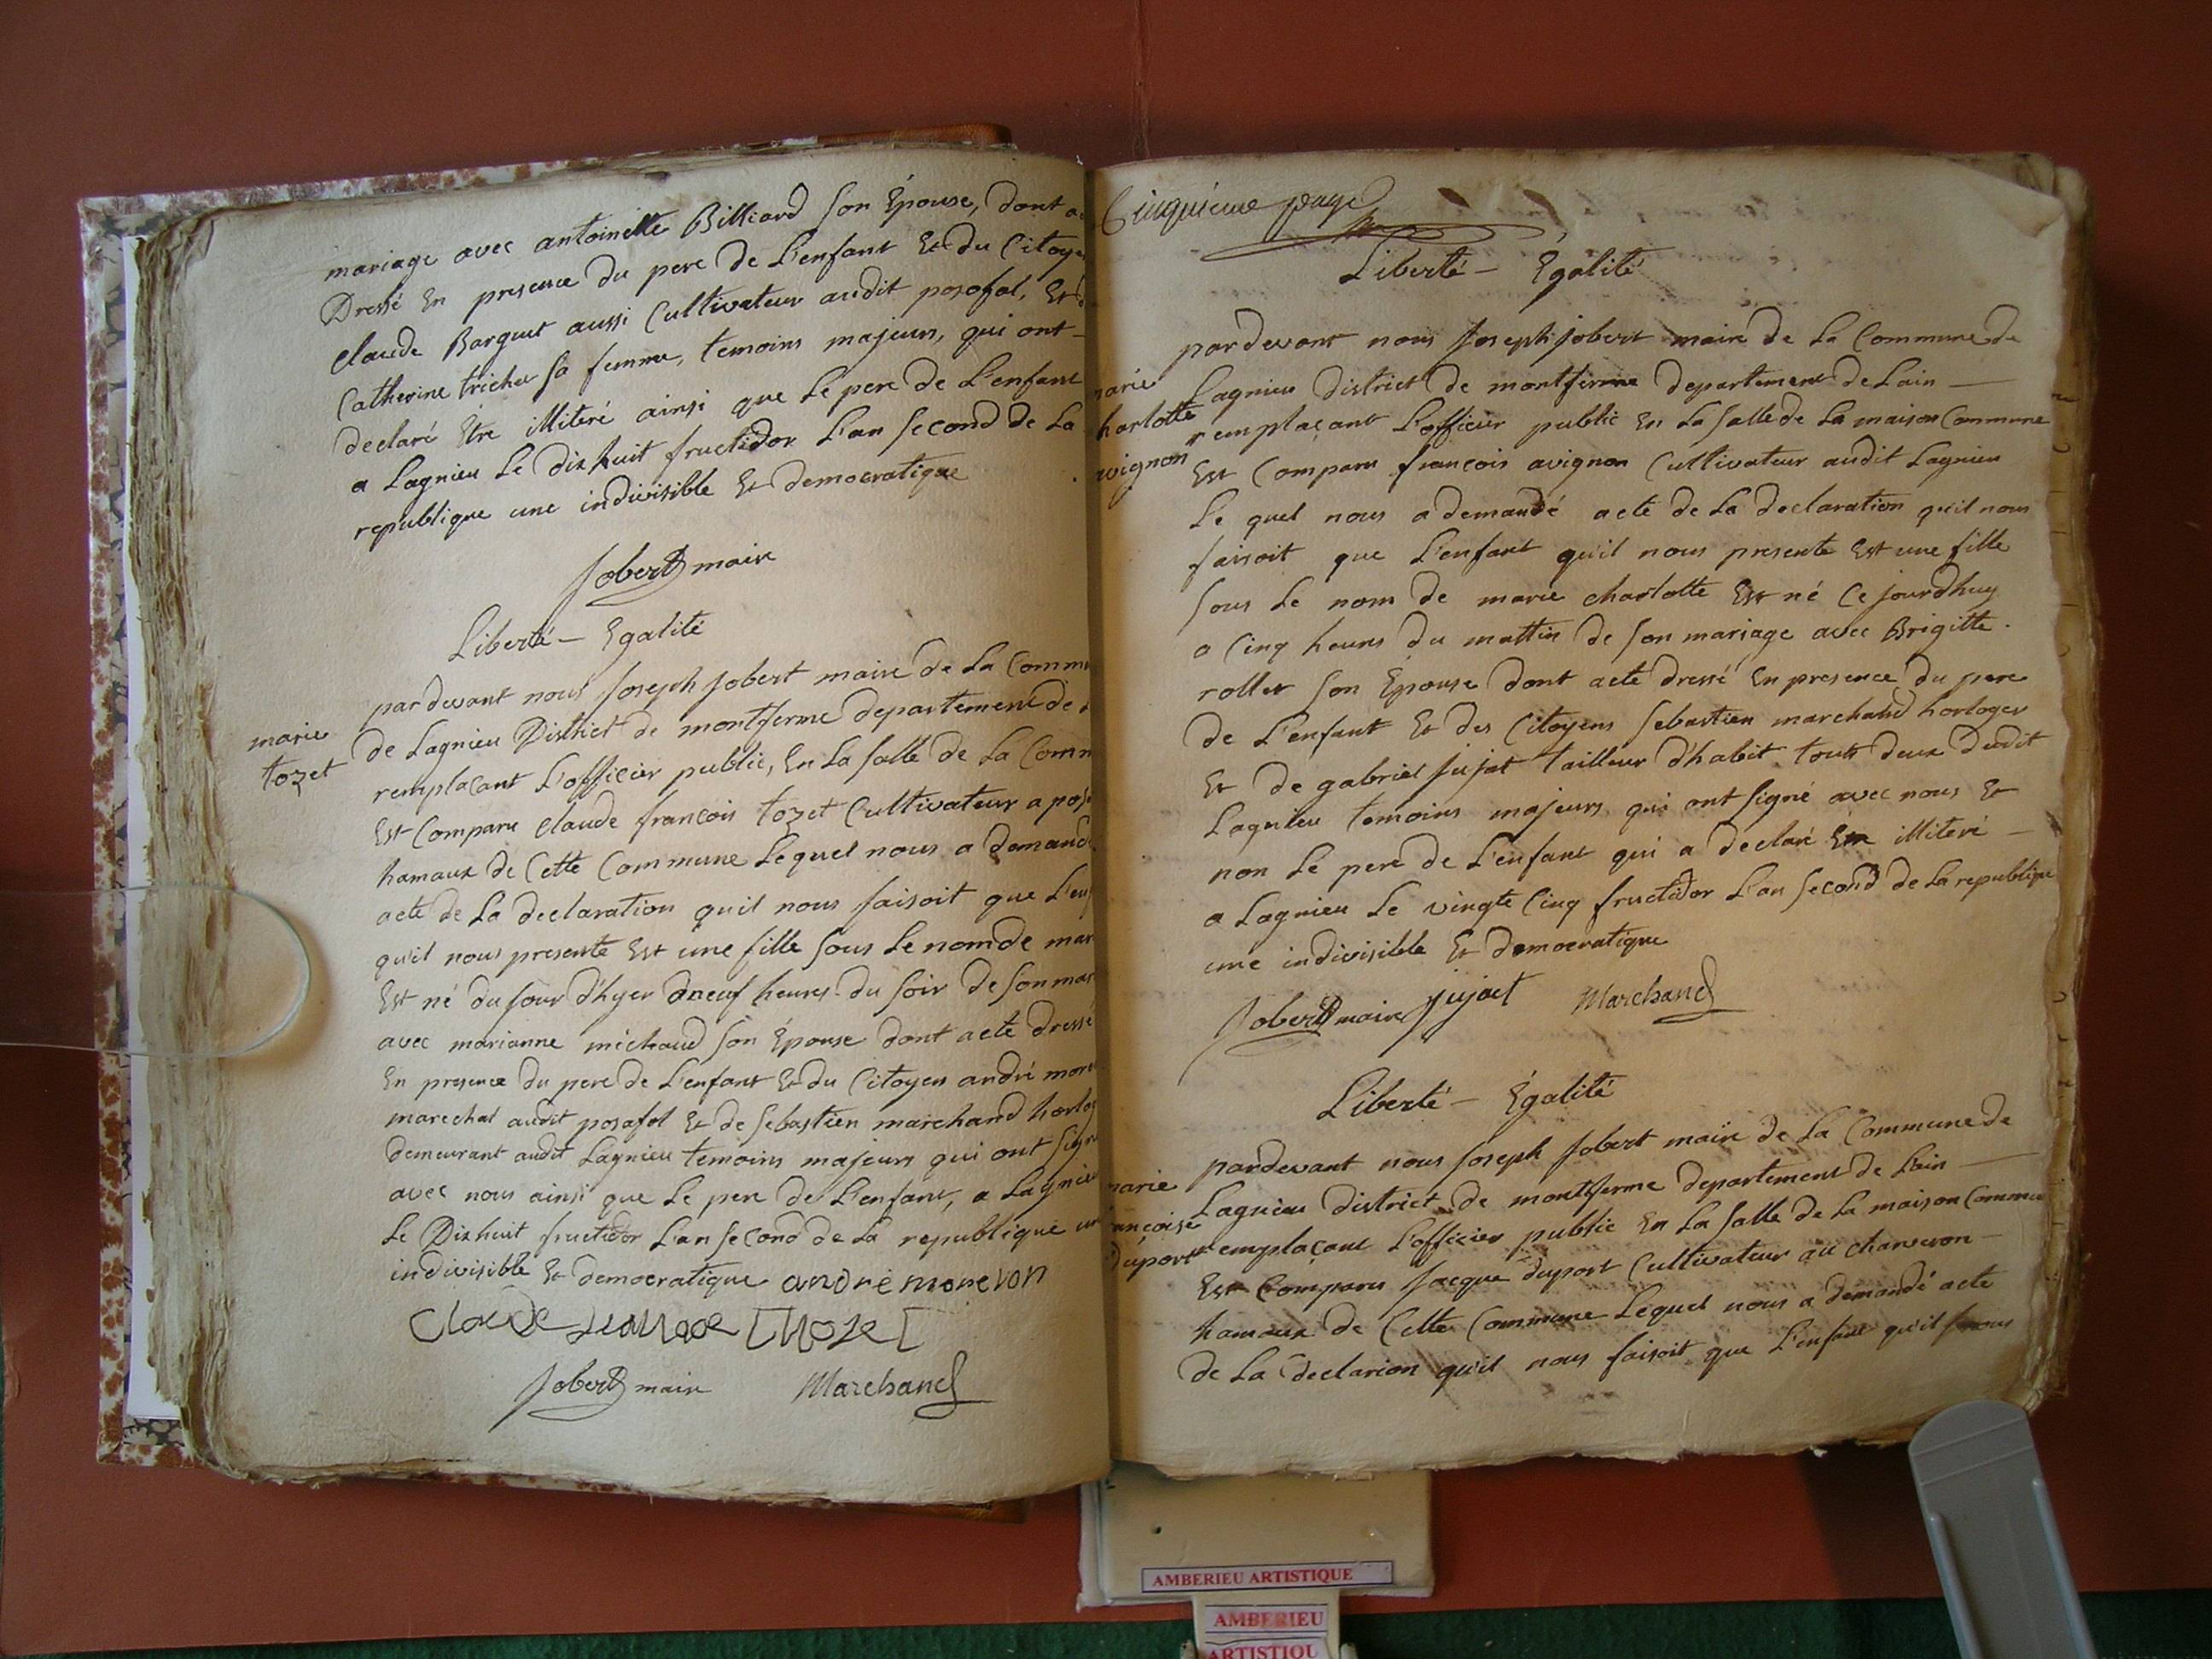 mariage avec antoinette Billiard son Épouse, dont a
Dressé En presence du pere de L'enfant Et du Citoye
claude Barguet aussi Cultivateur audit posafol, Et d
Catherine tricher sa femme, temoins majeurs, qui ont -
declaré Être illiteré ainsi que Le pere de L'enfant
a Lagnieu Le dix huit fructidor L'an second de La
republique une indivisible Et democratique
Jobert maire
Liberté - Egalité
pardevant nous Joseph Jobert maire de La Comm
marie
tozet
de Lagnieu District de montferme departement de
remplacant L'officier public, En La salle de La Comm
Est Comparu claude françois tozet Cultivateur a pos
hamaux de Cette Commune Lequel nous a demand
acte de La declaration quil nous faisoit que L'en
qu'il nous presente Est une fille sous Le nom de mar
Est né du jour d'hyer a neuf heures du soir de son mar
avec marianne michaud son Épouse dont acte dressé
En presence du pere de L'enfant Et du Citoyen andré mor
marechal audit posafol Et de sebastien marchand horlog
demeurant audit Lagnieu temoins majeurs qui ont sign
avec nous ainsi que Le pere de L'enfant, a Lagnieu
Le Dixhuit fructidor L'an second de La republique un
indivisible Et democratique andré moreron
Claude tozet
Jobert maire Marchand
Cinquieme page
Liberté - Égalité
pardevant nous Joseph Jobert maire de La Commune de
arie
harlotte
avignon
Lagnieu District de montferme departement de Lain -
remplaçant L'officier public En La salle de La maison Commune
Est Comparu françois avignon Cultivateur audit Lagnieu
Le quel nous a demandé acte de La declaration qu'il nous
faisoit que L'enfant qu'il nous presente Est une fille
sous Le nom de marie charlotte Est né Ce jourdhuy
a Cinq heures du mattin de son mariage avec Brigitte
rollet son Épouse dont acte dressé En presence du pere
de L'enfant Et des Citoyens sebastien marchand horloger
Et de gabriel jujat tailleur d'habit touts deux dudit
Lagnieu temoins majeurs qui ont signé avec nous Et
non Le pere de L'enfant qui a declaré Etre illiteré -
a Lagnieu Le vingte Cinq fructidor L'an second de La republique
une indivisible Et democratique
Jobert maire jujat Marchand
Liberté - Égalité
pardevant nous Joseph Jobert maire de La Commune de
arie
ançoise
duport
Lagnieu district de montferme departement de Lain -
remplaçant L'officier public En La salle de La maison Commun
Est Comparu Jacque duport Cultivateur au charveron -
hamaux de Cette Commune Lequel nous a demandé acte
de La declarion qu'il nous faisoit que L'enfant qu'il nous
AMBERIEU ARTISTIQUE
AMBERIEU
ARTISTIQU